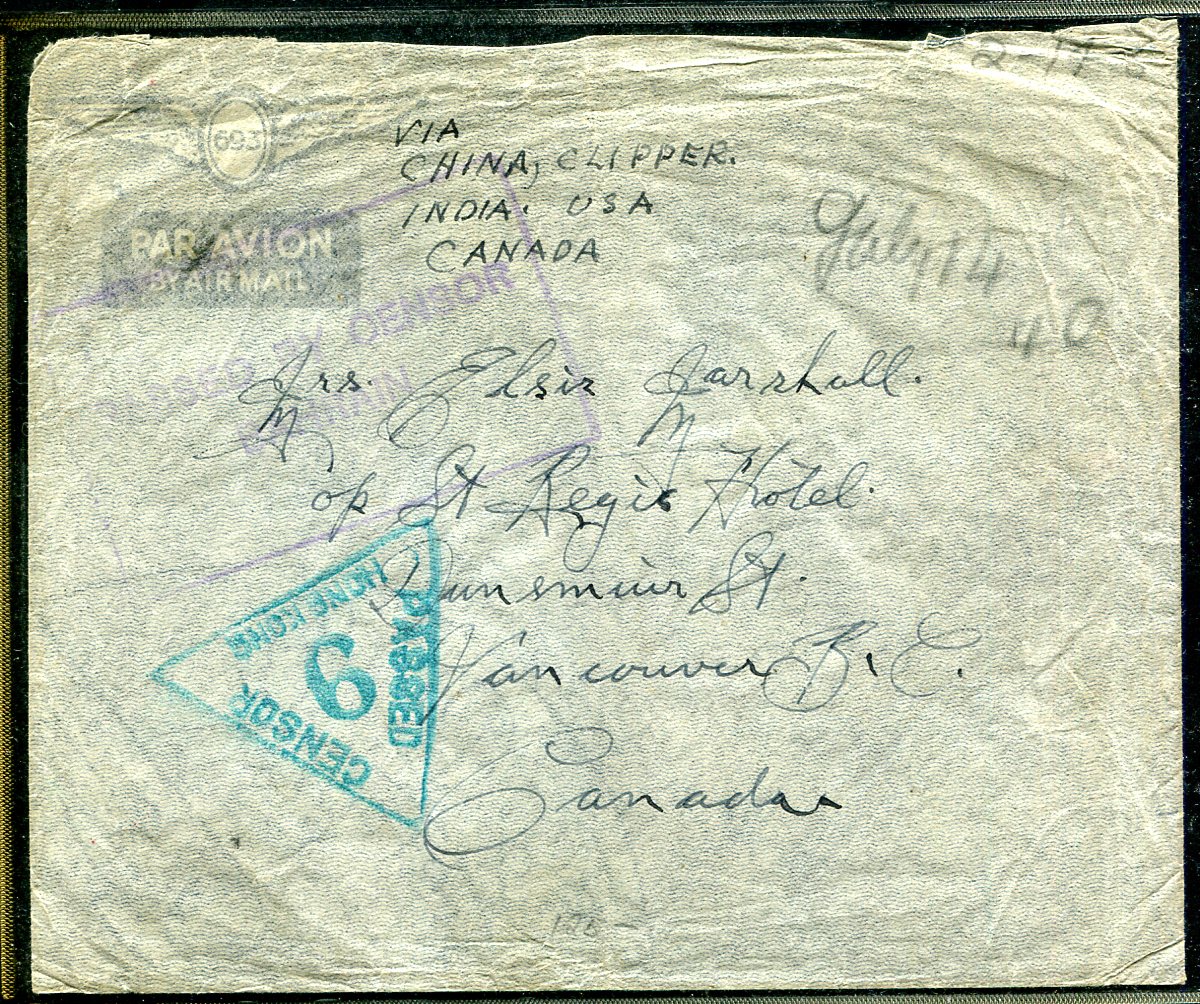 693
PAR AVION
BY AIR MAIL
VIA
CHINA, CLIPPER.
INDIA. USA
CANADA
July 14
40
PASSED BY CENSOR
Mrs. Elsie Marshall.
M M
c/o St Regis Hotel.
Dunsmuir St.
Vancouver B. C.
Canada.
PASSED
HONG KONG
6
CENSOR